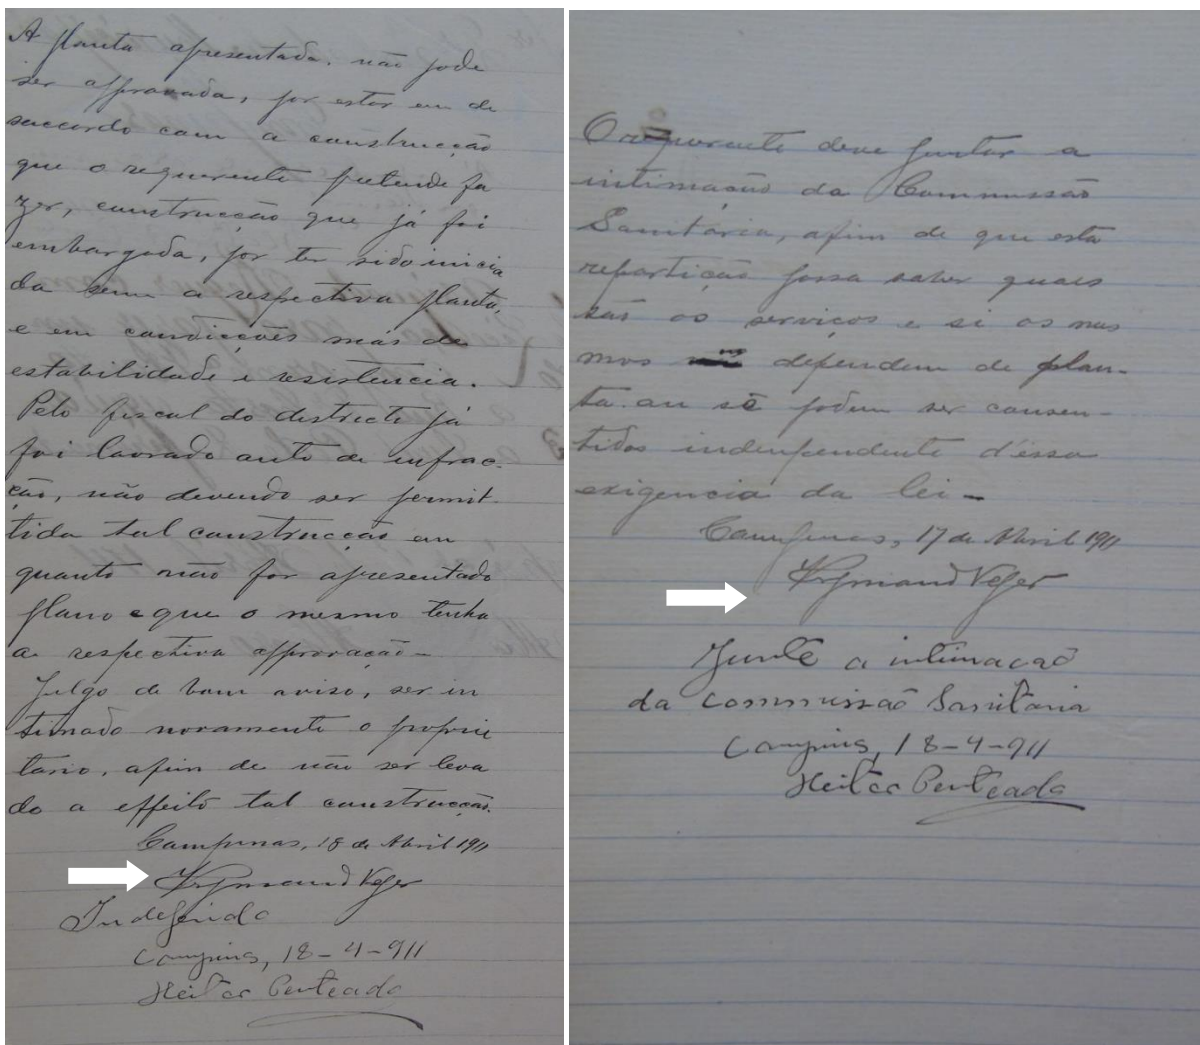 A planta apresentada, não pode
ser approvada, por estar em de
saccordo com a construcção
que o requerente pretende fa
zer, construcção que já foi
embargada, por ter sido inicia
da sem a respectiva planta,
e em condicções más de
estabilidade e resistencia.
Pelo fiscal do districto já
foi lavrado auto de infrac-
ção, não devendo ser permit-
tida tal construcção em
quanto não for apresentado
plano e que o mesmo tenha
a respectiva approvação-
Julgo de bom aviso, ser in
timado novamente o proprie
tario, afim de não ser leva
do a effeito tal construcção.
Campinas, 18 de Abril 1911
Indeferido
Campinas, 18-4-911
Heitor Penteado
O requerente deve juntar a
intimação da Commissão
Sanitaria, afim de que esta
repartição possa saber quaes
são os serviços e si os mes
mos dependem de plan-
ta ou se podem ser consen-
tidos independente d'essa
exigencia da lei-
Campinas, 17 de Abril 1911
Junte a intimação
da commissão Sanitaria
Campinas, 18-4-911
Heitor Penteado